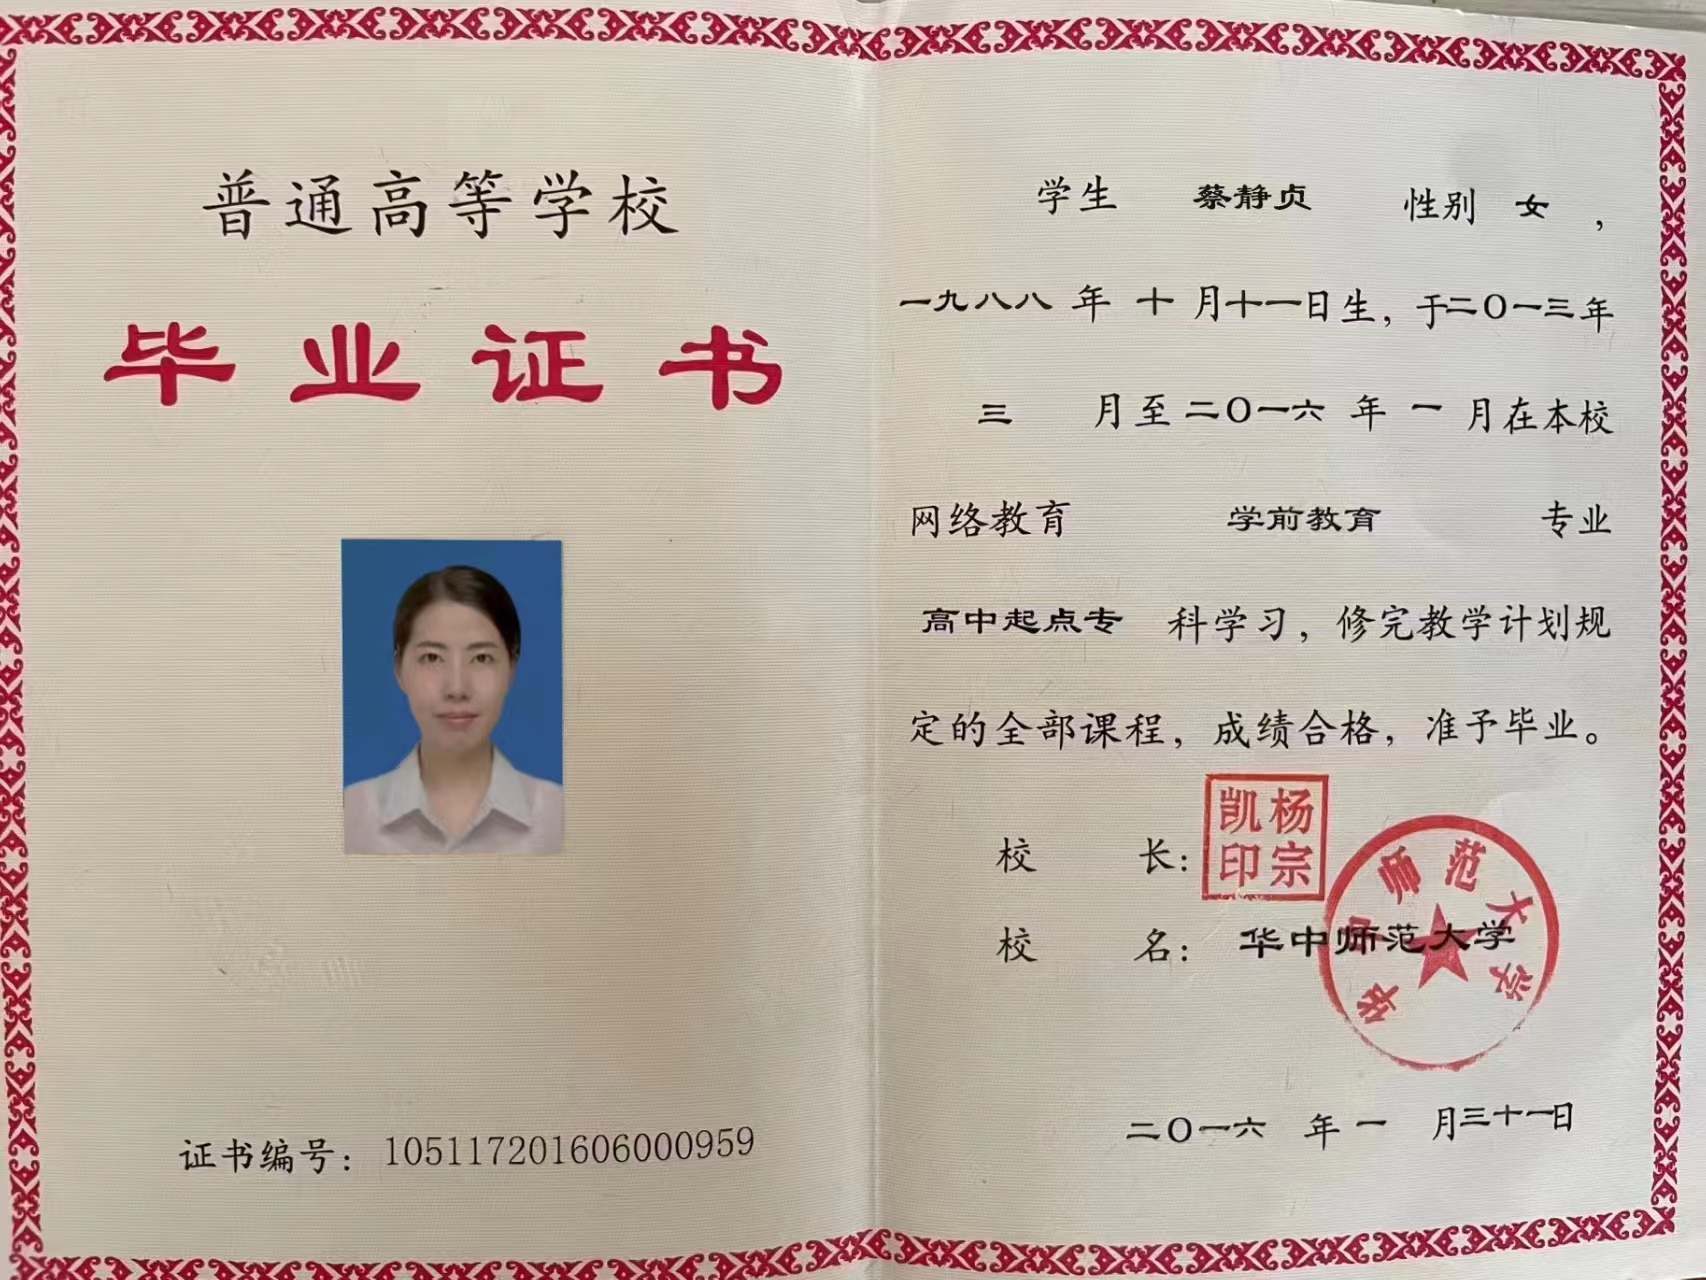 普通高等学校
毕业证书
证书编号：105117201606000959
学生 蔡静贞 性别 女，
一九八八年十月十一日生，于二〇一三年
三月至二〇一六年一月在本校
网络教育 学前教育 专业
高中起点专科学习，修完教学计划规
定的全部课程，成绩合格，准予毕业。
校长：
杨宗凯印
校名：华中师范大学
华中师范大学
二〇一六年一月三十一日